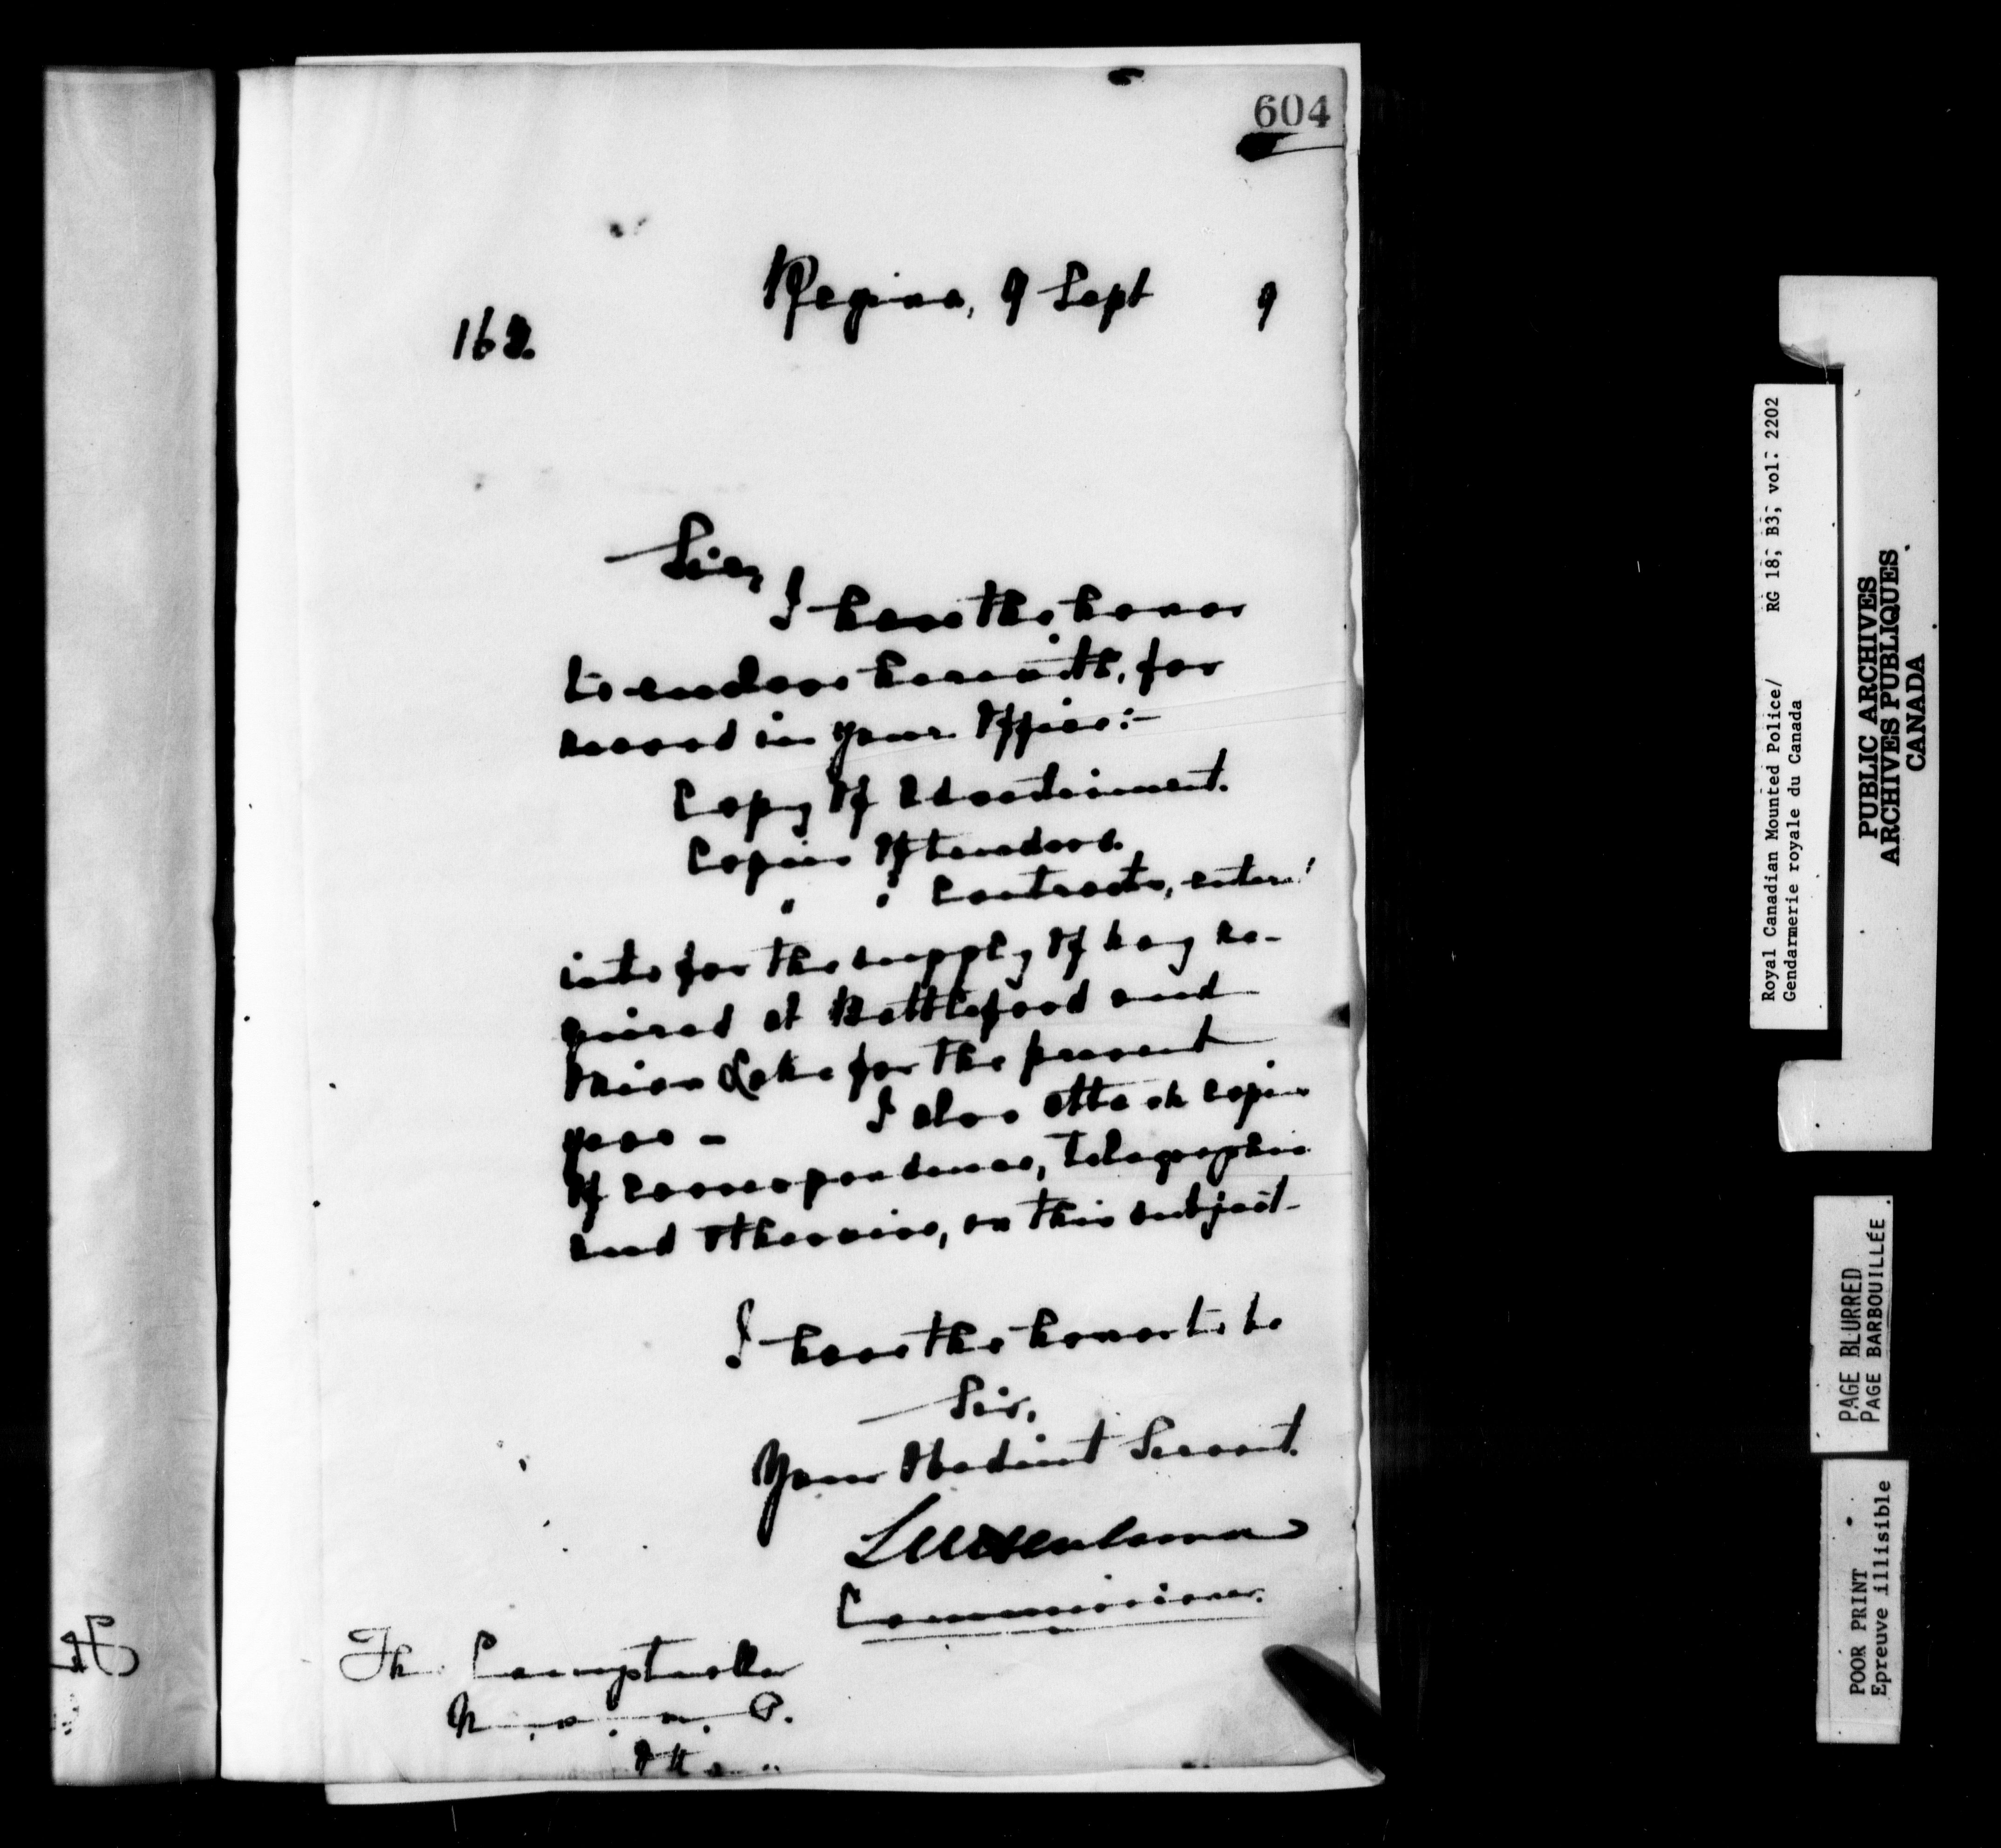 604
Regina, 9 Sept 9
162.
Sir,
I have the honor
to enclose herewith, for
record in your Office:-
Copy of Advertisement.
Copies of tenders.
" " Contracts, entered
into for the supply of hay re-
quired at Battleford and
Onion Lake for the present
year - I also attach copies
of correspondence, telegraphic
and otherwise, on this subject -
I have the honor to be
Sir,
Your Obedient Servant.
Commissioner.
The Comptroller
N. W. M. P.
Ottawa
Royal Canadian Mounted Police/ RG 18; B3; vol: 2202
Gendarmerie royale du Canada
PUBLIC ARCHIVES
ARCHIVES PUBLIQUES
CANADA
PAGE BLURRED
PAGE BARBOUILLÉE
POOR PRINT
Epreuve illisible